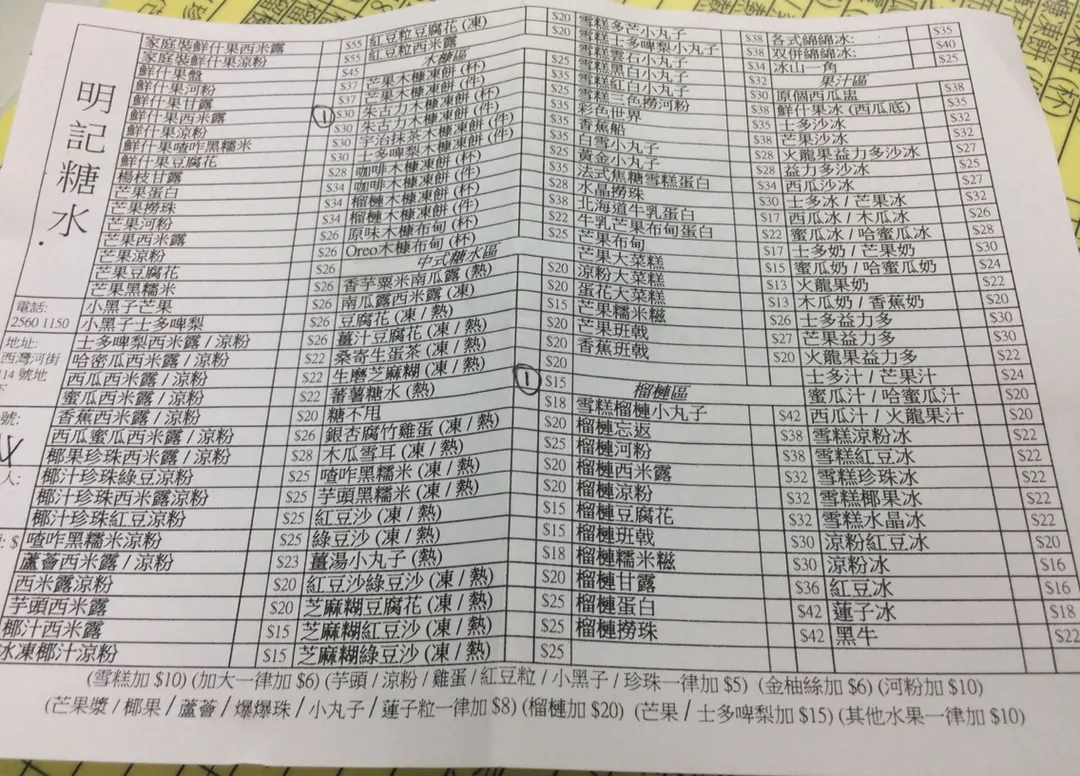 明記糖水
電話:
2560 1150
地址:
西灣河街
114 號地
號:
人:
$
家庭裝鮮什果西米露
家庭裝鮮什果涼粉
鮮什果盤
鮮什果河粉
鮮什果甘露
鮮什果西米露
鮮什果涼粉
鮮什果喳咋黑糯米
鮮什果豆腐花
楊枝甘露
芒果蛋白
芒果撈珠
芒果河粉
芒果西米露
芒果涼粉
芒果豆腐花
芒果黑糯米
小黑子芒果
小黑子士多啤梨
士多啤梨西米露 / 涼粉
哈密瓜西米露 / 涼粉
西瓜西米露 / 涼粉
蜜瓜西米露 / 涼粉
香蕉西米露 / 涼粉
西瓜蜜瓜西米露 / 涼粉
椰果珍珠西米露 / 涼粉
椰汁珍珠綠豆涼粉
椰汁珍珠西米露涼粉
椰汁珍珠紅豆涼粉
喳咋黑糯米涼粉
蘆薈西米露 / 涼粉
西米露涼粉
芋頭西米露
椰汁西米露
冰凍椰汁涼粉
1
$55
$55
$45
$37
$37
$30
$30
$30
$28
$34
$34
$26
$26
$26
$26
$26
$26
$22
$22
$22
$20
$26
$28
$25
$25
$25
$25
$23
$20
$20
$15
$15
紅豆粒豆腐花 (凍)
紅豆粒西米露
木糠區
芒果木糠凍餅 (杯)
芒果木糠凍餅 (件)
朱古力木糠凍餅 (杯)
朱古力木糠凍餅 (件)
宇治抹茶木糠凍餅 (件)
士多啤梨木糠凍餅 (件)
咖啡木糠凍餅 (杯)
咖啡木糠凍餅 (件)
榴槤木糠凍餅 (杯)
榴槤木糠凍餅 (件)
原味木糠布甸 (杯)
Oreo木糠布甸 (杯)
中式糖水區
香芋粟米南瓜露 (熱)
南瓜露西米露 (凍)
豆腐花 (凍 / 熱)
薑汁豆腐花 (熱)
桑寄生蛋茶 (凍 / 熱)
生磨芝麻糊 (凍 / 熱)
蕃薯糖水 (熱)
糖不甩
銀杏腐竹雞蛋 (凍 / 熱)
木瓜雪耳 (凍 / 熱)
喳咋黑糯米 (凍 / 熱)
芋頭黑糯米 (凍 / 熱)
紅豆沙 (凍 / 熱)
綠豆沙 (凍 / 熱)
薑湯小丸子 (熱)
紅豆沙綠豆沙 (凍 / 熱)
芝麻糊豆腐花 (凍 / 熱)
芝麻糊紅豆沙 (凍 / 熱)
芝麻糊綠豆沙 (凍 / 熱)
1
$20
$20
$25
$35
$25
$35
$25
$35
$25
$35
$28
$38
$22
$25
$20
$20
$15
$20
$20
$20
$15
$18
$20
$25
$20
$15
$15
$18
$20
$25
$25
$25
雪糕多芒小丸子
雪糕士多啤梨小丸子
雪糕雲石小丸子
雪糕黑白小丸子
雪糕紅白小丸子
雪糕三色撈河粉
彩色世界
香蕉船
白雪小丸子
黃金小丸子
法式焦糖雪糕蛋白
水晶撈珠
北海道牛乳蛋白
牛乳芒果布甸蛋白
芒果布甸
芒果大菜糕
涼粉大菜糕
蛋花大菜糕
芒果糯米糍
芒果班戟
香蕉班戟
榴槤區
雪糕榴槤小丸子
榴槤忘返
榴槤河粉
榴槤西米露
榴槤涼粉
榴槤豆腐花
榴槤班戟
榴槤糯米糍
榴槤甘露
榴槤蛋白
榴槤撈珠
$38
$38
$34
$32
$30
$38
$35
$38
$28
$28
$34
$30
$17
$22
$17
$15
$13
$13
$26
$27
$20
$42
$38
$38
$32
$32
$32
$30
$30
$36
$42
$42
各式綿綿冰:
双併綿綿冰:
冰山一角
果汁區
原個西瓜盅
鮮什果冰 (西瓜底)
士多沙冰
芒果沙冰
火龍果益力多沙冰
益力多沙冰
西瓜沙冰
士多冰 / 芒果冰
西瓜冰 / 木瓜冰
蜜瓜冰 / 哈蜜瓜冰
士多奶 / 芒果奶
蜜瓜奶 / 哈蜜瓜奶
火龍果奶
木瓜奶 / 香蕉奶
士多益力多
芒果益力多
火龍果益力多
士多汁 / 芒果汁
蜜瓜汁 / 哈蜜瓜汁
西瓜汁 / 火龍果汁
雪糕涼粉冰
雪糕紅豆冰
雪糕珍珠冰
雪糕椰果冰
雪糕水晶冰
涼粉紅豆冰
涼粉冰
紅豆冰
蓮子冰
黑牛
$35
$40
$25
$38
$35
$32
$32
$27
$25
$27
$32
$26
$28
$30
$24
$22
$20
$30
$30
$22
$24
$20
$20
$22
$22
$22
$22
$22
$20
$16
$16
$18
$22
(雪糕加 $10) (加大一律加 $6) (芋頭 / 涼粉 / 雞蛋 / 紅豆粒 / 小黑子 / 珍珠一律加 $5) (金柚絲加 $6) (河粉加 $10)
(芒果漿 / 椰果 / 蘆薈 / 爆爆珠 / 小丸子 / 蓮子粒一律加 $8) (榴槤加 $20) (芒果 / 士多啤梨加 $15) (其他水果一律加 $10)